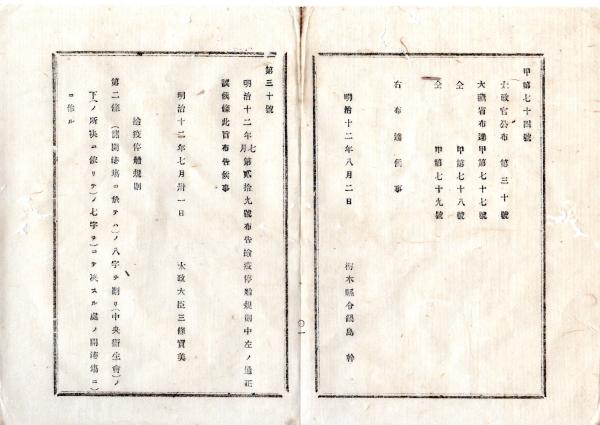 甲第七十四號
太政官公布　第三十號
大藏省布達甲第七十七號
仝　甲第七十八號
仝　甲第七十九號
右布達候事
明治十二年八月二日
栃木縣令鍋島幹
第三十號
明治十二年七月第貳拾九號布告檢疫停船規則中左ノ通正
誤候條此旨布告候事
明治十二年七月卅一日
太政大臣三條實美
檢疫停船規則
第二條（諸開港場ニ於テハ）ノ八字ヲ削リ（中央衛生會）ノ
下（ノ所決ニ依リテ）ノ七字ヲ（ニテ決スル處ノ開港場ニ）
ニ作ル
〇一